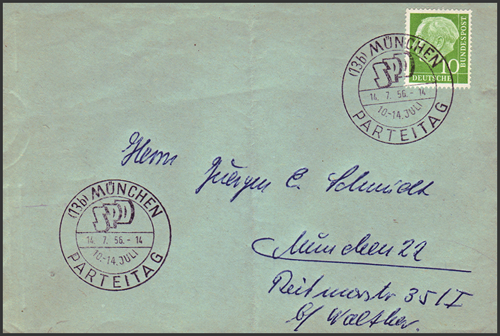 (13b) MÜNCHEN
SPD
14. 7. 56. - 14
10.-14. JULI
PARTEITAG
10
BUNDESPOST
DEUTSCHE
Herrn
Juergen C. Schmidt
München 22
Reitmorstr 35/I
b/ Walther
(13b) MÜNCHEN
SPD
14. 7. 56. - 14
10.-14. JULI
PARTEITAG